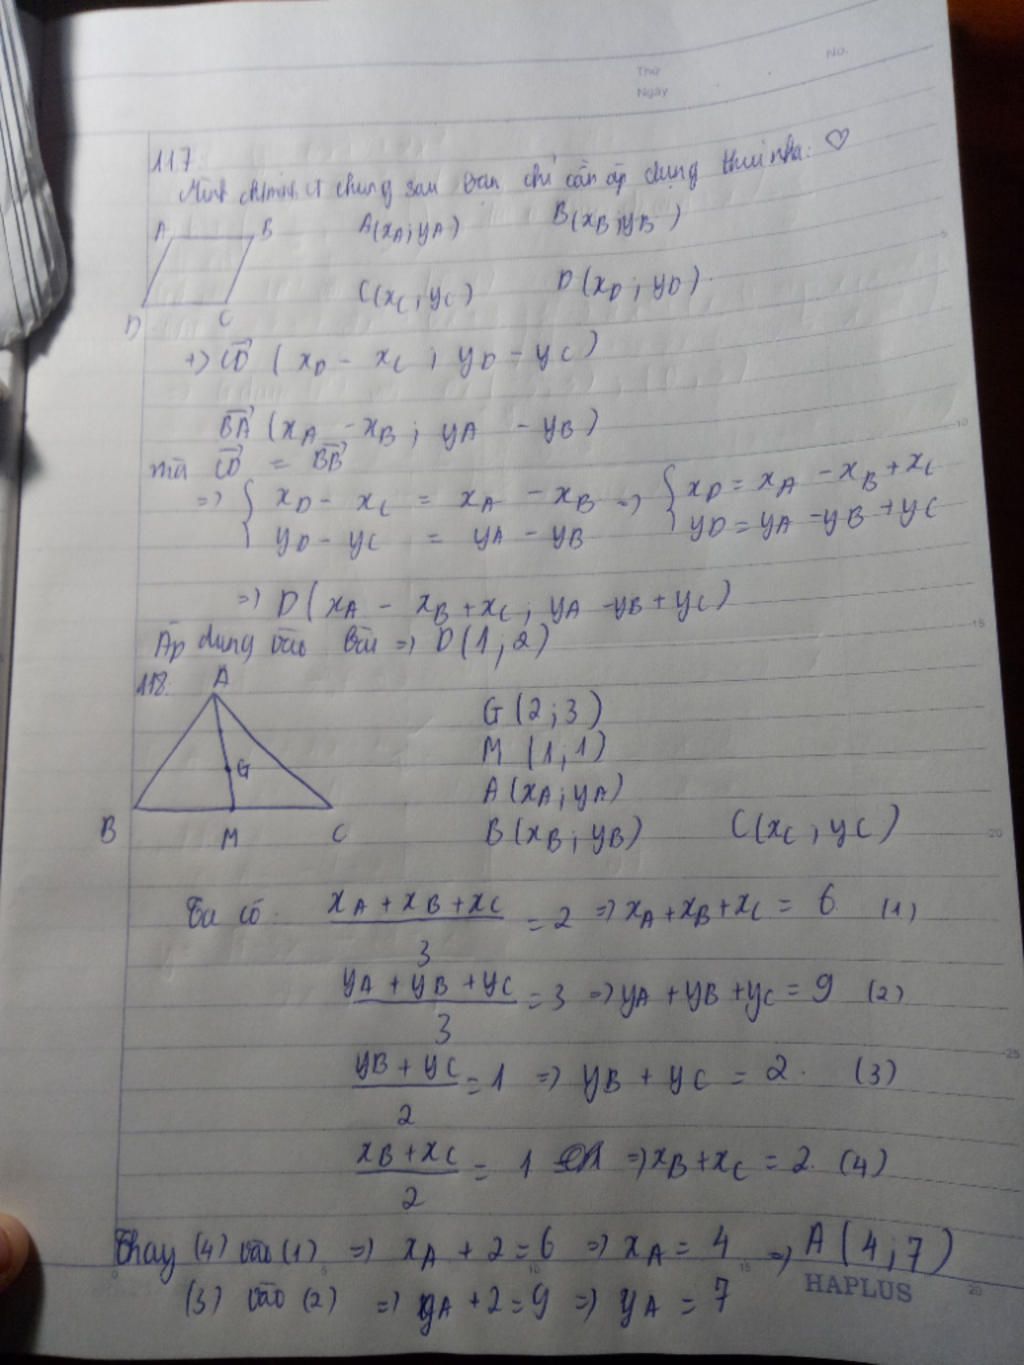 No.
Thứ
Ngày
117.
Mình chminh ct chung sau bạn chỉ cần áp dụng thui nha: ♡
A B
D C
A(xA; yA) B(xB; yB)
C(xC; yC) D(xD; yD).
+) CD→ (xD - xC; yD - yC)
BA→ (xA - xB; yA - yB)
mà CD→ = BB→
=> { xD - xC = xA - xB => { xD = xA - xB + xC
yD - yC = yA - yB yD = yA - yB + yC
=> D(xA - xB + xC; yA - yB + yC)
Áp dụng vào bài => D(1; 2)
118.
A
G
B M C
G(2; 3)
M(1; 1)
A(xA; yA)
B(xB; yB) C(xC; yC)
Ta có: (xA + xB + xC)/3 = 2 => xA + xB + xC = 6 (1)
(yA + yB + yC)/3 = 3 => yA + yB + yC = 9 (2)
(yB + yC)/2 = 1 => yB + yC = 2. (3)
(xB + xC)/2 = 1 => xB + xC = 2. (4)
Thay (4) vào (1) => xA + 2 = 6 => xA = 4 => A(4; 7)
(3) vào (2) => yA + 2 = 9 => yA = 7
HAPLUS
5
10
15
20
25
0 5 10 15 20